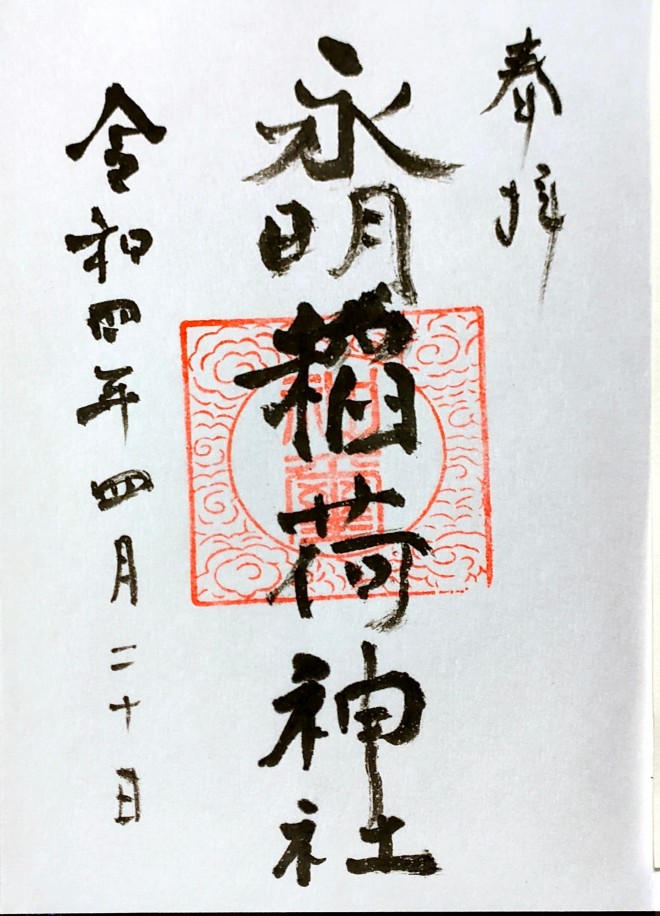 奉拝
永明稲荷神社
令和四年四月二十日